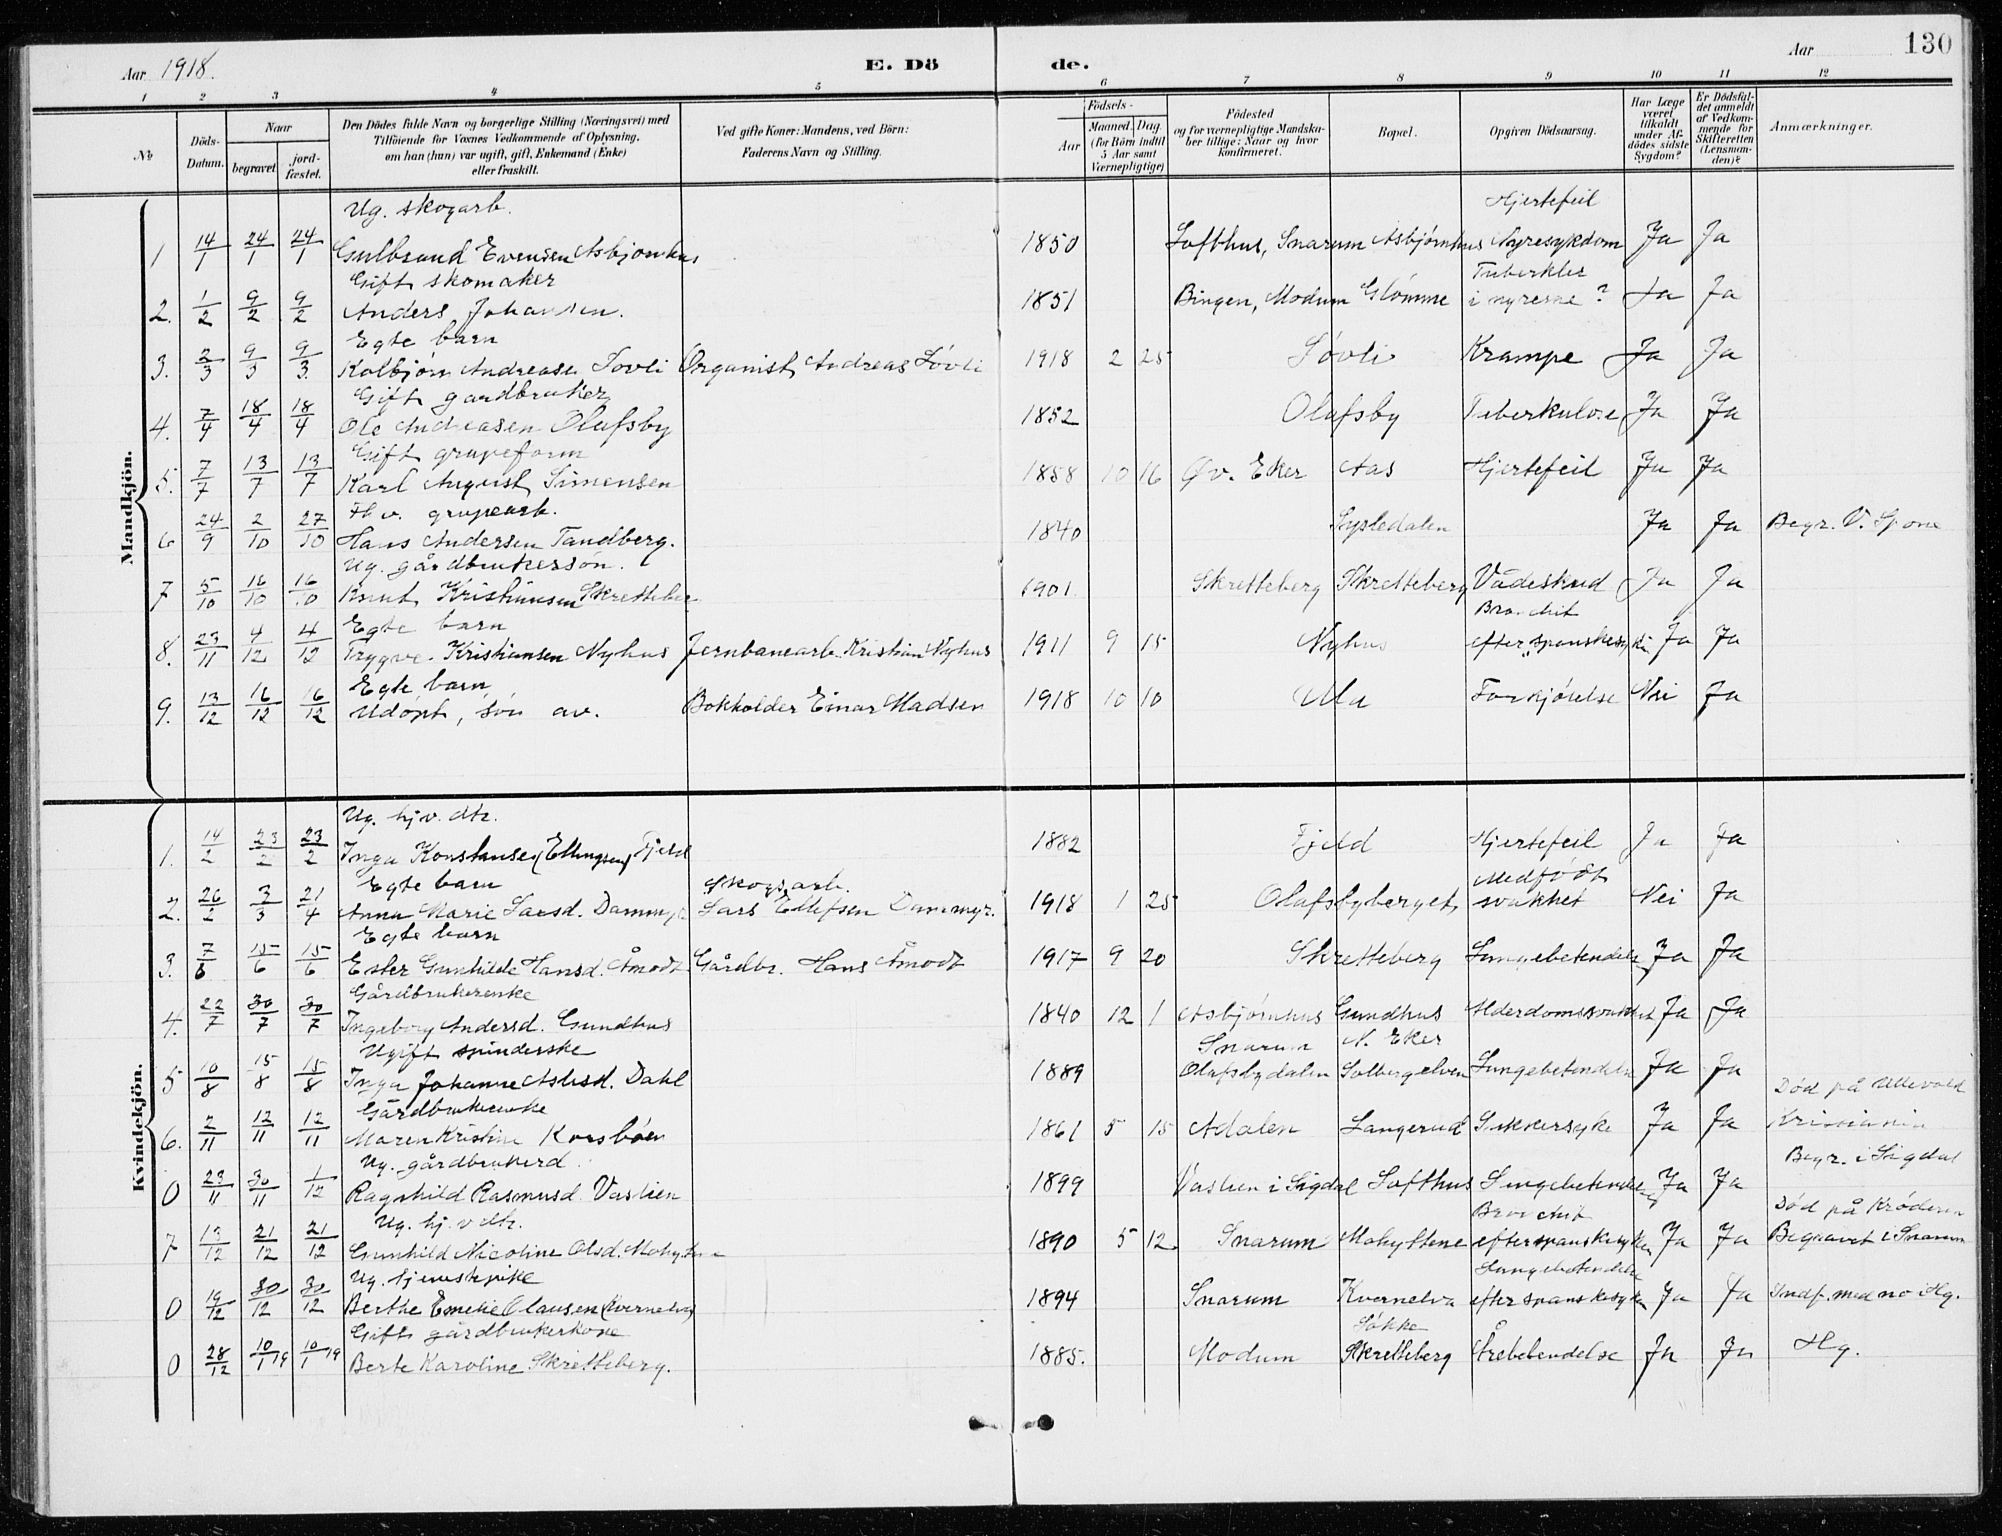 Aar 1918.
E. Dö de.
Aar 130
1 2 3 4 5 6 7 8 9 10 11 12
№
Döds-Datum.
Naar
begravet.
jord-fæstet.
Den Dödes fulde Navn og borgerlige Stilling (Næringsvei) med
Tilföiende for Voxnes Vedkommende af Oplysning,
om han (hun) var ugift, gift, Enkemand (Enke)
eller fraskilt.
Ved gifte Koner: Mandens, ved Börn:
Faderens Navn og Stilling.
Födsels-
Aar
Maaned. Dag.
(for Börn indtil
5 Aar samt
Værnepligtige)
Födested
og for værnepligtige Mandska-
ber tillige: Naar og hvor
konfirmeret.
Bopæl.
Opgiven Dödsaarsag.
Har Læge
været
tilkaldt
under Af-
dödes sidste
Sygdom?
Er Dödsfal-
det anmeldt
af Vedkom-
mende for
Skifteretten
(Lensman-
den)?
Anmærkninger.
Mandkjön.
Ug. skogarb. Hjertefeil
1 14/1 24/1 24/1 Gulbrand Evensen Asbjønhus 1850 Lofthus, Snarum Asbjørnhus Nyresykdom Ja Ja
Gift skomaker Tuberkler
2. 1/2 9/2 9/2 Anders Johansen. 1851 Bingen, Modum Glomme i nyrerne? Ja Ja
Egte barn
3. 2/3 9/3 9/3 Kolbjørn Andreasen Søvli Organist Andreas Søvli 1918 2 25 Søvli Krampe Ja Ja
Gift gardbruker
4. 7/4 18/4 18/4 Ole Andreasen Olafsby 1852 Olafsby Tuberkulose Ja Ja
Gift grubeform
5. 7/7 13/7 13/7 Karl August Simensen 1858 10 16 Øv. Eker Aas Hjertefeil Ja Ja
Fhv. grubearb.
6 24/9 2/10 27/10 Hans Andersen Tandberg. 1840 Sysledalen Ja Ja Begr. V. Spone
Ug. gårdbrukersøn.
7 5/10 16/10 16/10 Knut Kristiansen Skretteber 1901 Skretteberg Skretteberg Vådeskud Ja Ja
Egte barn Bronchit
8. 23/11 4/12 4/12 Trygve Kristiansen Nyhus Jernbanearb. Kristian Nyhus 1911 9 15 Nyhus efter spanskesyke Ja Ja
Egte barn
9. 13/12 16/12 16/12 Udøpt, søn av. Bokholder Einar Madsen 1918 10 10 Ula Forkjølelse Nei Ja
Kvindekjön.
Ug. hjv. dtr.
1. 14/2 23/2 23/2 Inga Konstanse (Ellingsen) Fjeld 1882 Fjeld Hjertefeil Ja Ja
Egte barn Skogsarb. Medfødt
2. 26/2 3/3 21/4 Anna Marie Larsd. Dammyr Lars Ellefsen Dammyr. 1918 1 25 Olafsbyberget svakhet Nei Ja
Egte barn
3. 7/6 15/6 15/6 Ester Gunhilde Hansd. Åmodt Gårdbr. Hans Åmodt 1917 9 20 Skretteberg Lungebetendelse Ja Ja
Gårdbrukerenke
4. 22/7 30/7 30/7 Ingeborg Andersd. Gundhus 1840 12 1 Asbjørnhus Gundhus Alderdomssvakhet Ja Ja
Ugift spinderske Snarum N. Eker
5 10/8 15/8 15/8 Inga Johanne Aslesd. Dahl 1889 Olafsbydalen Solbergelven Lungebetendelse Ja Ja
Gårdbrukerenke Død på Ullevold
6. 2/11 12/11 12/11 Maren Kristine Korsbøen 1861 5 15 Adalen Langerud Sukkersyke Ja Ja Kristiania
Ug. gårdbrukerd. Begr. i Sigdal
0 23/11 30/11 1/12 Ragnhild Rasmusd. Vaslien 1899 Vaslien i Sigdal Lofthus Lungebetendelse Ja Ja
Ug. hj. v. dtr. Bronchit Død på Krøderen
7 13/12 21/12 21/12 Gunhild Nicoline Olsd. Mohyttene 1890 5 12 Snarum Mohyttene efter spanskesyken Ja Ja Begravet i Snarum
Ug. tjenestepike Lungebetendelse
0 19/12 30/12 30/12 Berthe Emelie Olausen (Kvernelva) 1894 Snarum Kvernelva efter spanskesyken Ja Ja Indf. med no i Hg.
Gift gårdbrukerkone Løkke
0 28/12 10/1 19 10/1 19 Berte Karoline Skretteberg. 1885. Modum Skretteberg Årebetendelse Ja Ja Hg.